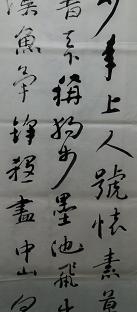 少年上人號懷素草
書天下稱獨步墨池飛出
溟魚筆鋒殺盡中山